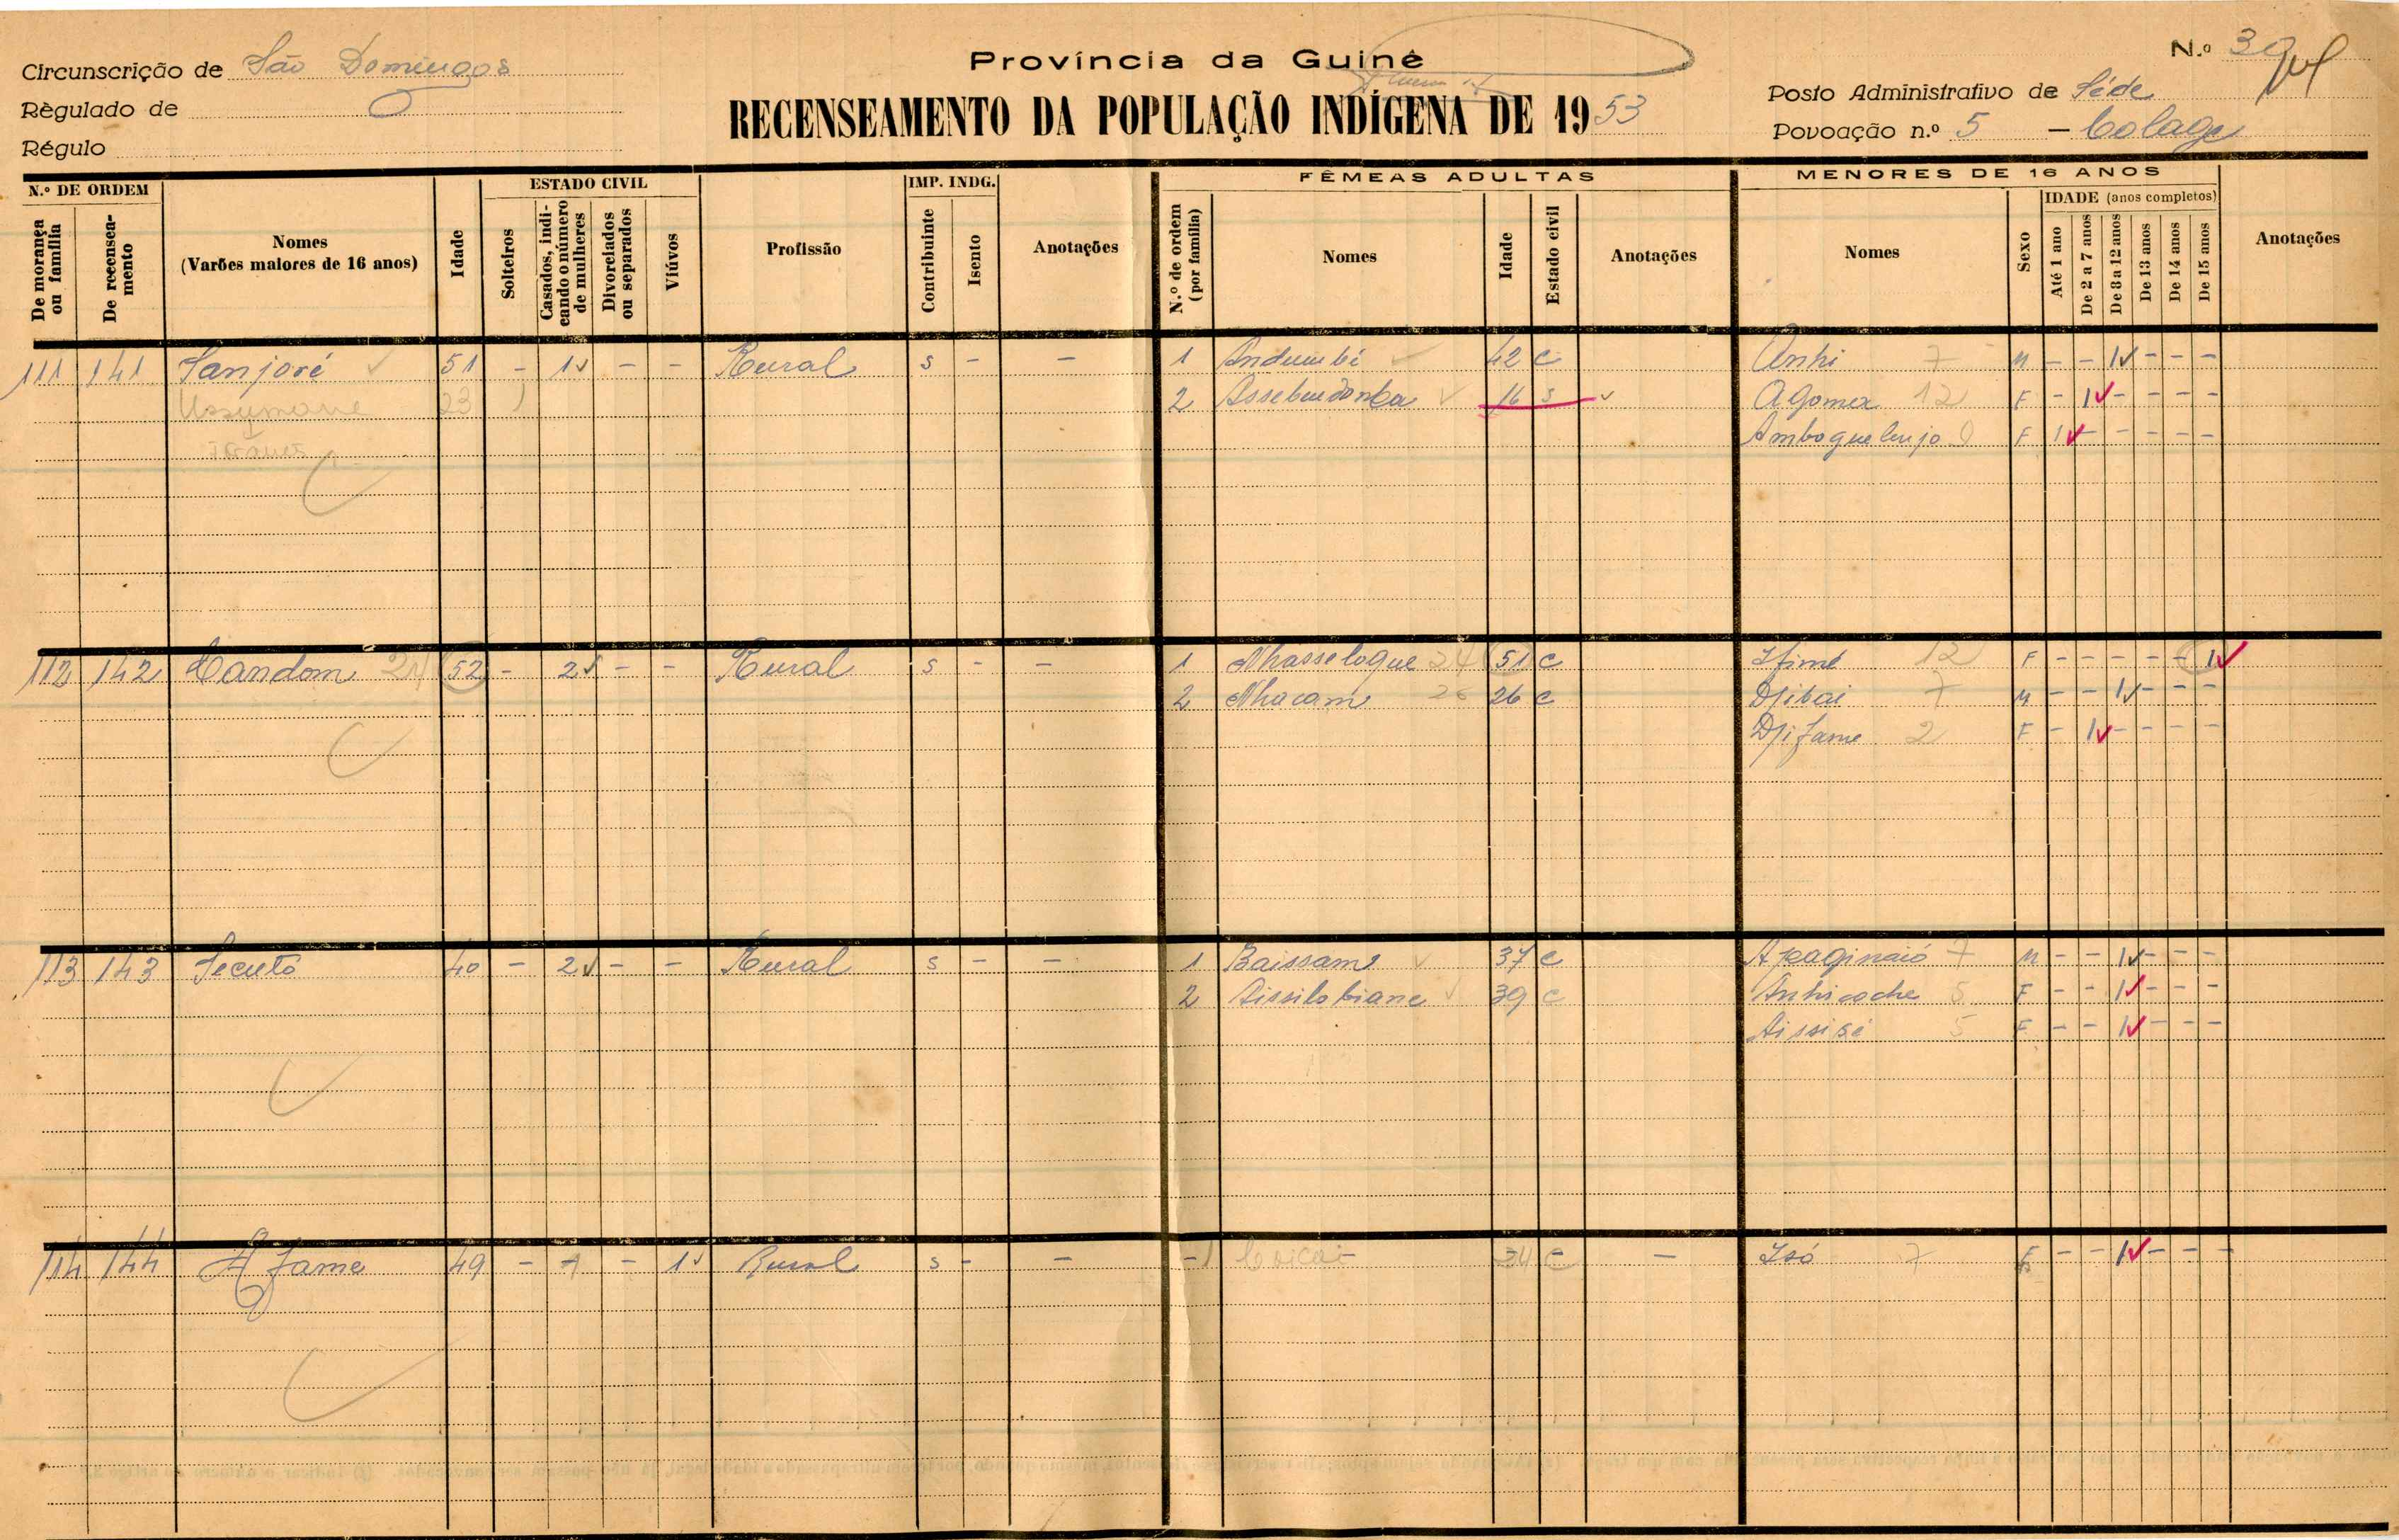 Província da Guiné
N.º 39
Circunscrição de São Domingos
Régulado de
Régulo
RECENSEAMENTO DA POPULAÇÃO INDÍGENA DE 1953
Posto Administrativo de Séde
Povoação n.º 5 — Colage
N.º DE ORDEM
De morança ou família
De recenseamento
Nomes
(Varões maiores de 16 anos)
Idade
ESTADO CIVIL
Solteiros
Casados, indicando o número de mulheres
Divorciados ou separados
Viúvos
Profissão
IMP. INDG.
Contribuinte
Isento
Anotações
FÊMEAS ADULTAS
N.º de ordem (por família)
Nomes
Idade
Estado civil
Anotações
MENORES DE 16 ANOS
Nomes
Sexo
IDADE (anos completos)
Até 1 ano
De 2 a 7 anos
De 8 a 12 anos
De 13 anos
De 14 anos
De 15 anos
Anotações
111 141 Sanjoré 51 - 1 - - Rural s - - 1 Andumbé 42 c Anhi 7 M - - 1 - - -
Ussumane 23 1 2 16 s Agomex 12 F - 1 - - - -
Amboquelujo F 1 - - - - -
112 142 Candom 21 52 - 2 - - Rural s - - 1 Nhasseloque 24 51 c Ifimé 12 F - - - - - 1
2 Nhacam 26 26 c Djibai 7 M - - 1 - - -
Djifame 2 F - 1 - - - -
113 143 Secuto 40 - 2 - - Rural s - - 1 Baissame 37 c Apaginaió 7 M - - 1 - - -
2 Aissilobiane 39 c Anhicoche 5 F - - 1 - - -
Aissisé 5 F - - 1 - - -
114 144 Afame 49 - 1 - 1 Rural s - - - 1 34 c - Isó 7 F - - 1 - - -